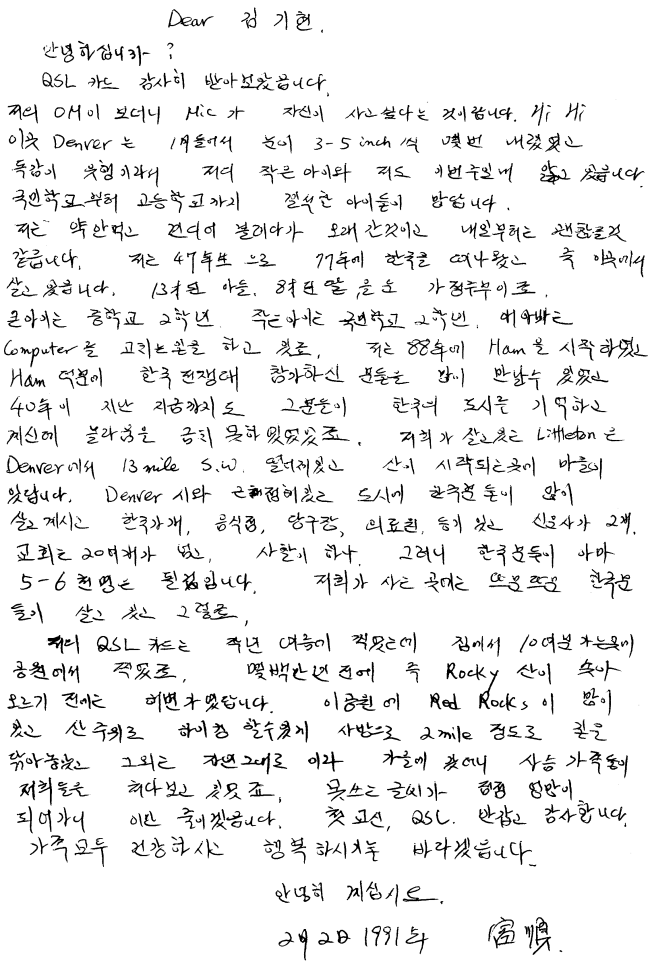 Dear 김 기현.
안녕하십니까 ?
QSL 카드 감사히 받아보았읍니다.
저의 OM이 보더니 Mic 가 자신이 사고 싶다는 것이랍니다. Hi Hi
이곳 Denver 는 1月들어서 눈이 3-5 inch 씩 몇번 내렸었고
독감이 유행이라서 저의 작은 아이와 저도 이번주일내 앓고 있읍니다.
국민학교부터 고등학교까지 결석한 아이들이 많답니다.
저는 약안먹고 견디어 볼려다가 오래 간것이고 내일부터는 괜찮을것
같읍니다. 저는 47年生 으로 77年에 한국을 떠나왔고 쭉 이곳에서
살고 있읍니다. 13才된 아들, 8才된 딸을 둔 가정주부이죠.
큰아이는 중학교 2학년. 작은아이는 국민학교 2학년. 애아빠는
Computer 을 고치는 일을 하고 있죠. 저는 88年에 Ham 을 시작하였고
Ham 덕분에 한국 전쟁때 참가하신 분들을 많이 만날수 있었고
40年이 지난 지금까지도 그분들이 한국의 도시를 기억하고
계신에 놀라움을 금치 못하였었죠. 저희가 살고있는 Littleton 은
Denver 에서 13 mile S.W. 떨어져있고 산이 시작되는곳에 마을이
있답니다. Denver 시와 근접해있는 도시에 한국분들이 많이
살고 계시고 한국가게, 음식점, 당구장, 의료원, 등이 있고 신문사가 2개.
교회는 20여개가 넘고, 사찰이 하나. 그러니 한국분들이 아마
5-6 천명은 될겁입니다. 저희가 사는 곳에는 뜨문뜨문 한국분
들이 살고 있고 그렇죠.
저의 QSL 카드는 작년 여름에 찍었는데 집에서 10여분 가는곳에
공원에서 찍었죠. 몇백만년 전에 즉 Rocky 산이 솟아
오르기 전에는 해변가였답니다. 이공원에 Red Rocks 이 많이
있고 산 주위로 하이킹 할수있게 사방으로 2 mile 정도로 길을
닦아놓았고 그외는 자연그대로 이라 가을에 갔더니 사슴 가족들이
저희들을 쳐다보고 있었죠. 못쓰는 글씨가 점점 엉망이
되어가니 이만 줄이겠읍니다. 첫 교신, QSL. 반갑고 감사합니다.
가족모두 건강하시고 행복하시기를 바라겠읍니다.
안녕히 계십시요.
2月 2日 1991年 富順.